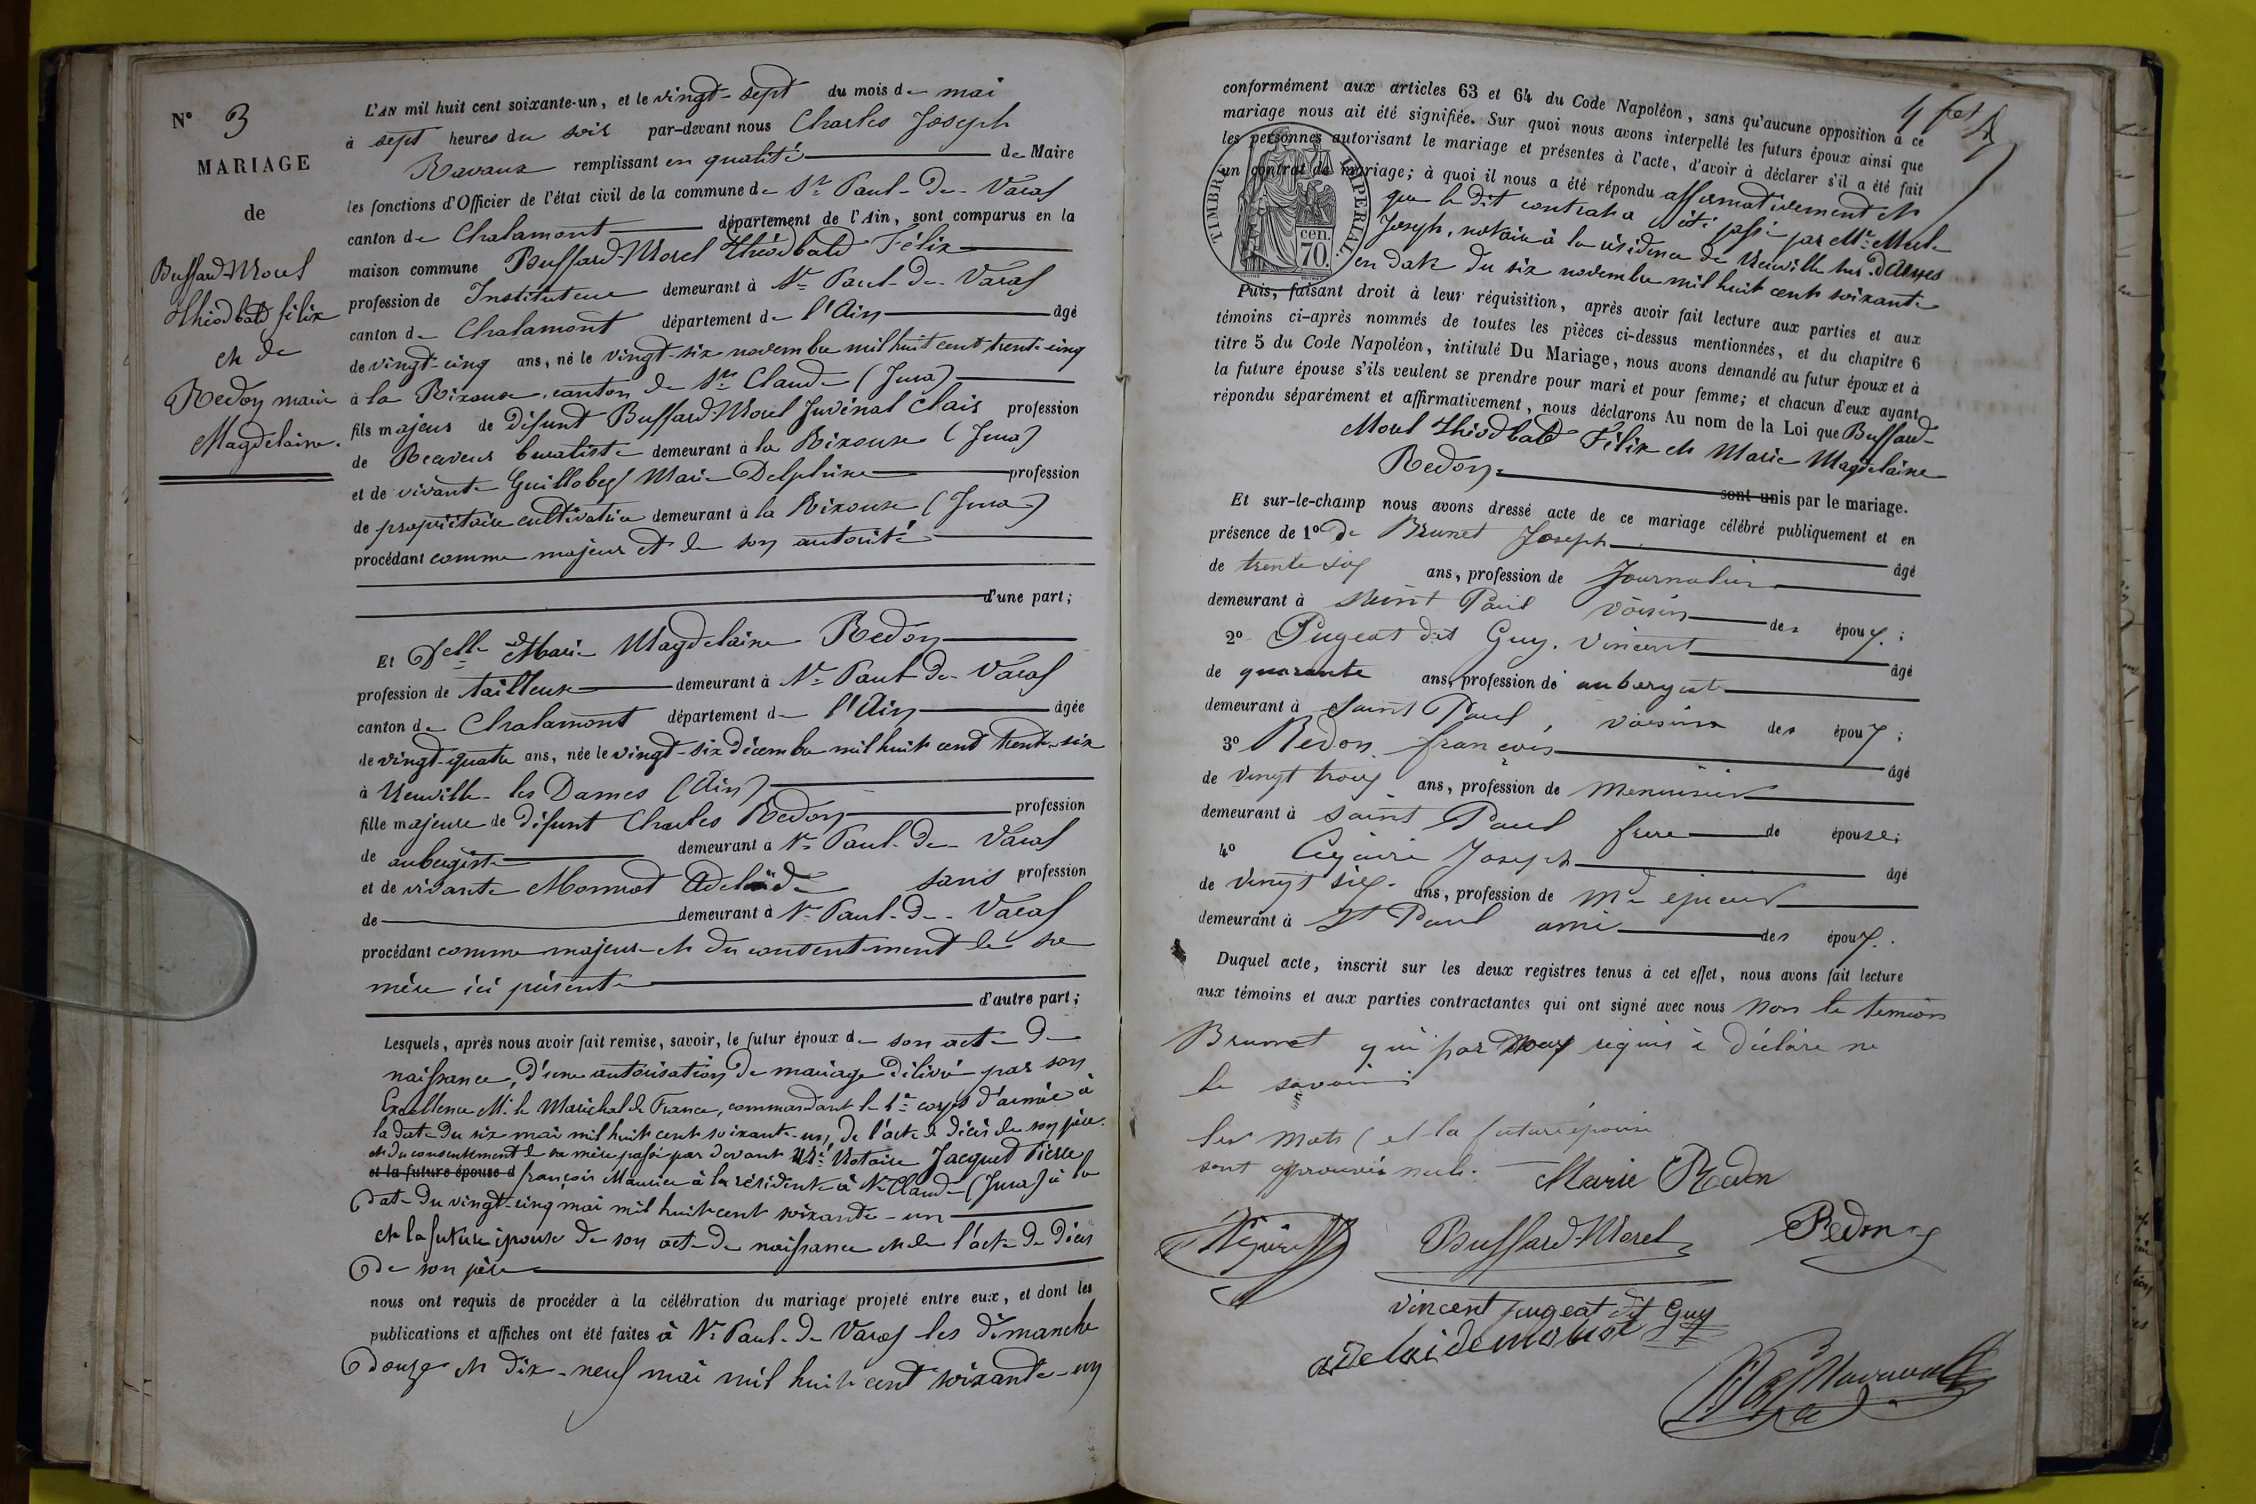 N° 3
MARIAGE
de
Buffard-Morel
Théodbald félix
et de
Redon marie
Magdelaine.
L'AN mil huit cent soixante-un, et le vingt-sept du mois de mai
à sept heures du soir par-devant nous Charles Joseph
Ravaux remplissant en qualité de Maire
les fonctions d'Officier de l'état civil de la commune de St Paul-de-Varas
canton de Chalamont département de l'Ain, sont comparus en la
maison commune Buffard-Morel Théodbald Félix
profession de Instituteur demeurant à St Paul-de-Varas
canton de Chalamont département de l'Ain âgé
de vingt-cinq ans, né le vingt-six novembre mil huit cent trente-cinq
à la Rixouse, canton de St Claude (Jura)
fils majeur de défunt Buffard-Morel Juvénal Clais profession
de Receveur buraliste demeurant à la Rixouse (Jura)
et de vivante Guillobez Marie Delphine profession
de propriétaire cultivatrice demeurant à la Rixouse (Jura)
procédant comme majeur et de son autorité
d'une part;
Et Delle Marie Magdelaine Redon
profession de tailleuse demeurant à St Paul-de-Varas
canton de Chalamont département de l'Ain âgée
de vingt-quatre ans, née le vingt-six décembre mil huit cent trente-six
à Neuville-les Dames (Ain)
fille majeure de défunt Charles Redon profession
de aubergiste demeurant à St Paul-de-Varas
et de vivante Monnod Adelaïde sans profession
de demeurant à St Paul-de-Varas
procédant comme majeure et du consentement de sa
mère ici présente
d'autre part;
Lesquels, après nous avoir fait remise, savoir, le futur époux de son acte de
naissance, d'une autorisation de mariage délivré par son
Excellence M. le Maréchal de France, commandant le 4e corps d'armée à
la date du six mai mil huit cent soixante-un, de l'acte de décès de son père.
et du consentement de sa mère passé par devant Me Notaire Jacquet Pierre
et la future épouse d françois Maurice à la résidente à St Claude (Jura) à la
date du vingt-cinq mai mil huit cent soixante-un
et la future épouse de son acte de naissance et de l'acte de décès
de son père
nous ont requis de procéder à la célébration du mariage projeté entre eux, et dont les
publications et affiches ont été faites à St Paul-de Varas les dimanche
douze et dix-neuf mai mil huit cent soixante-un
conformément aux articles 63 et 64 du Code Napoléon, sans qu'aucune opposition à ce
mariage nous ait été signifiée. Sur quoi nous avons interpellé les futurs époux ainsi que
les personnes autorisant le mariage et présentes à l'acte, d'avoir à déclarer s'il a été fait
un contrat de mariage; à quoi il nous a été répondu affirmativement et
que le dit contrat a été passé par Me Merle
Joseph, notaire à la résidence de Neuville les-Dames
en date du six novembre mil huit cent soixante
TIMBRE IMPERIAL
cen.
70.
Puis, faisant droit à leur réquisition, après avoir fait lecture aux parties et aux
témoins ci-après nommés de toutes les pièces ci-dessus mentionnées, et du chapitre 6
titre 5 du Code Napoléon, intitulé Du Mariage, nous avons demandé au futur époux et à
la future épouse s'ils veulent se prendre pour mari et pour femme; et chacun d'eux ayant
répondu séparément et affirmativement, nous déclarons Au nom de la Loi que Buffard-
Morel Théodbald Félix et Marie Magdelaine
Redon
sont unis par le mariage.
Et sur-le-champ nous avons dressé acte de ce mariage célébré publiquement et en
présence de 1° de Brunet Joseph âgé
de trente six ans, profession de Journalier
demeurant à saint Paul voisin des époux;
2° Pugeat dit Guy. Vincent âgé
de quarante ans, profession de aubergiste
demeurant à Saint Paul, voisin des époux;
3° Redon françois âgé
de vingt trois ans, profession de menuisier
demeurant à saint Paul frere de épouse;
4° Joseph âgé
de vingt six ans, profession de Md epicier
demeurant à St Paul ami des époux.
Duquel acte, inscrit sur les deux registres tenus à cet effet, nous avons fait lecture
aux témoins et aux parties contractantes qui ont signé avec nous Non le temoin
Brunet qui par nous requis à déclaré ne
le savoir
les mots (et la future épouse
sont approuvés nuls.
Marie Redon
Buffard-Morel
Redon
vincent pugeat dit Guy
adelaide monot